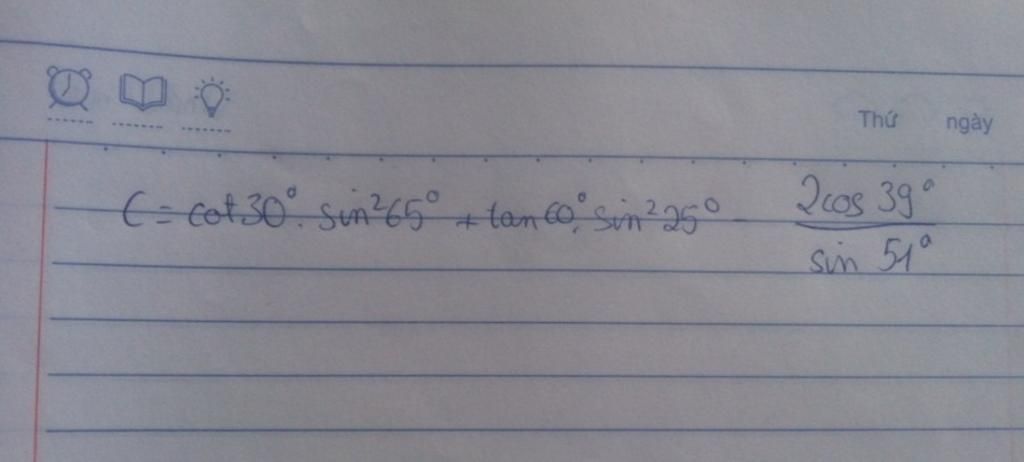 Thứ ngày
C = cot30°. sin²65° + tan60°. sin²25° - 2cos 39° / sin 51°